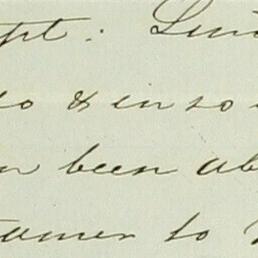 pt: Lin
so & in so
n been ab
tamer to